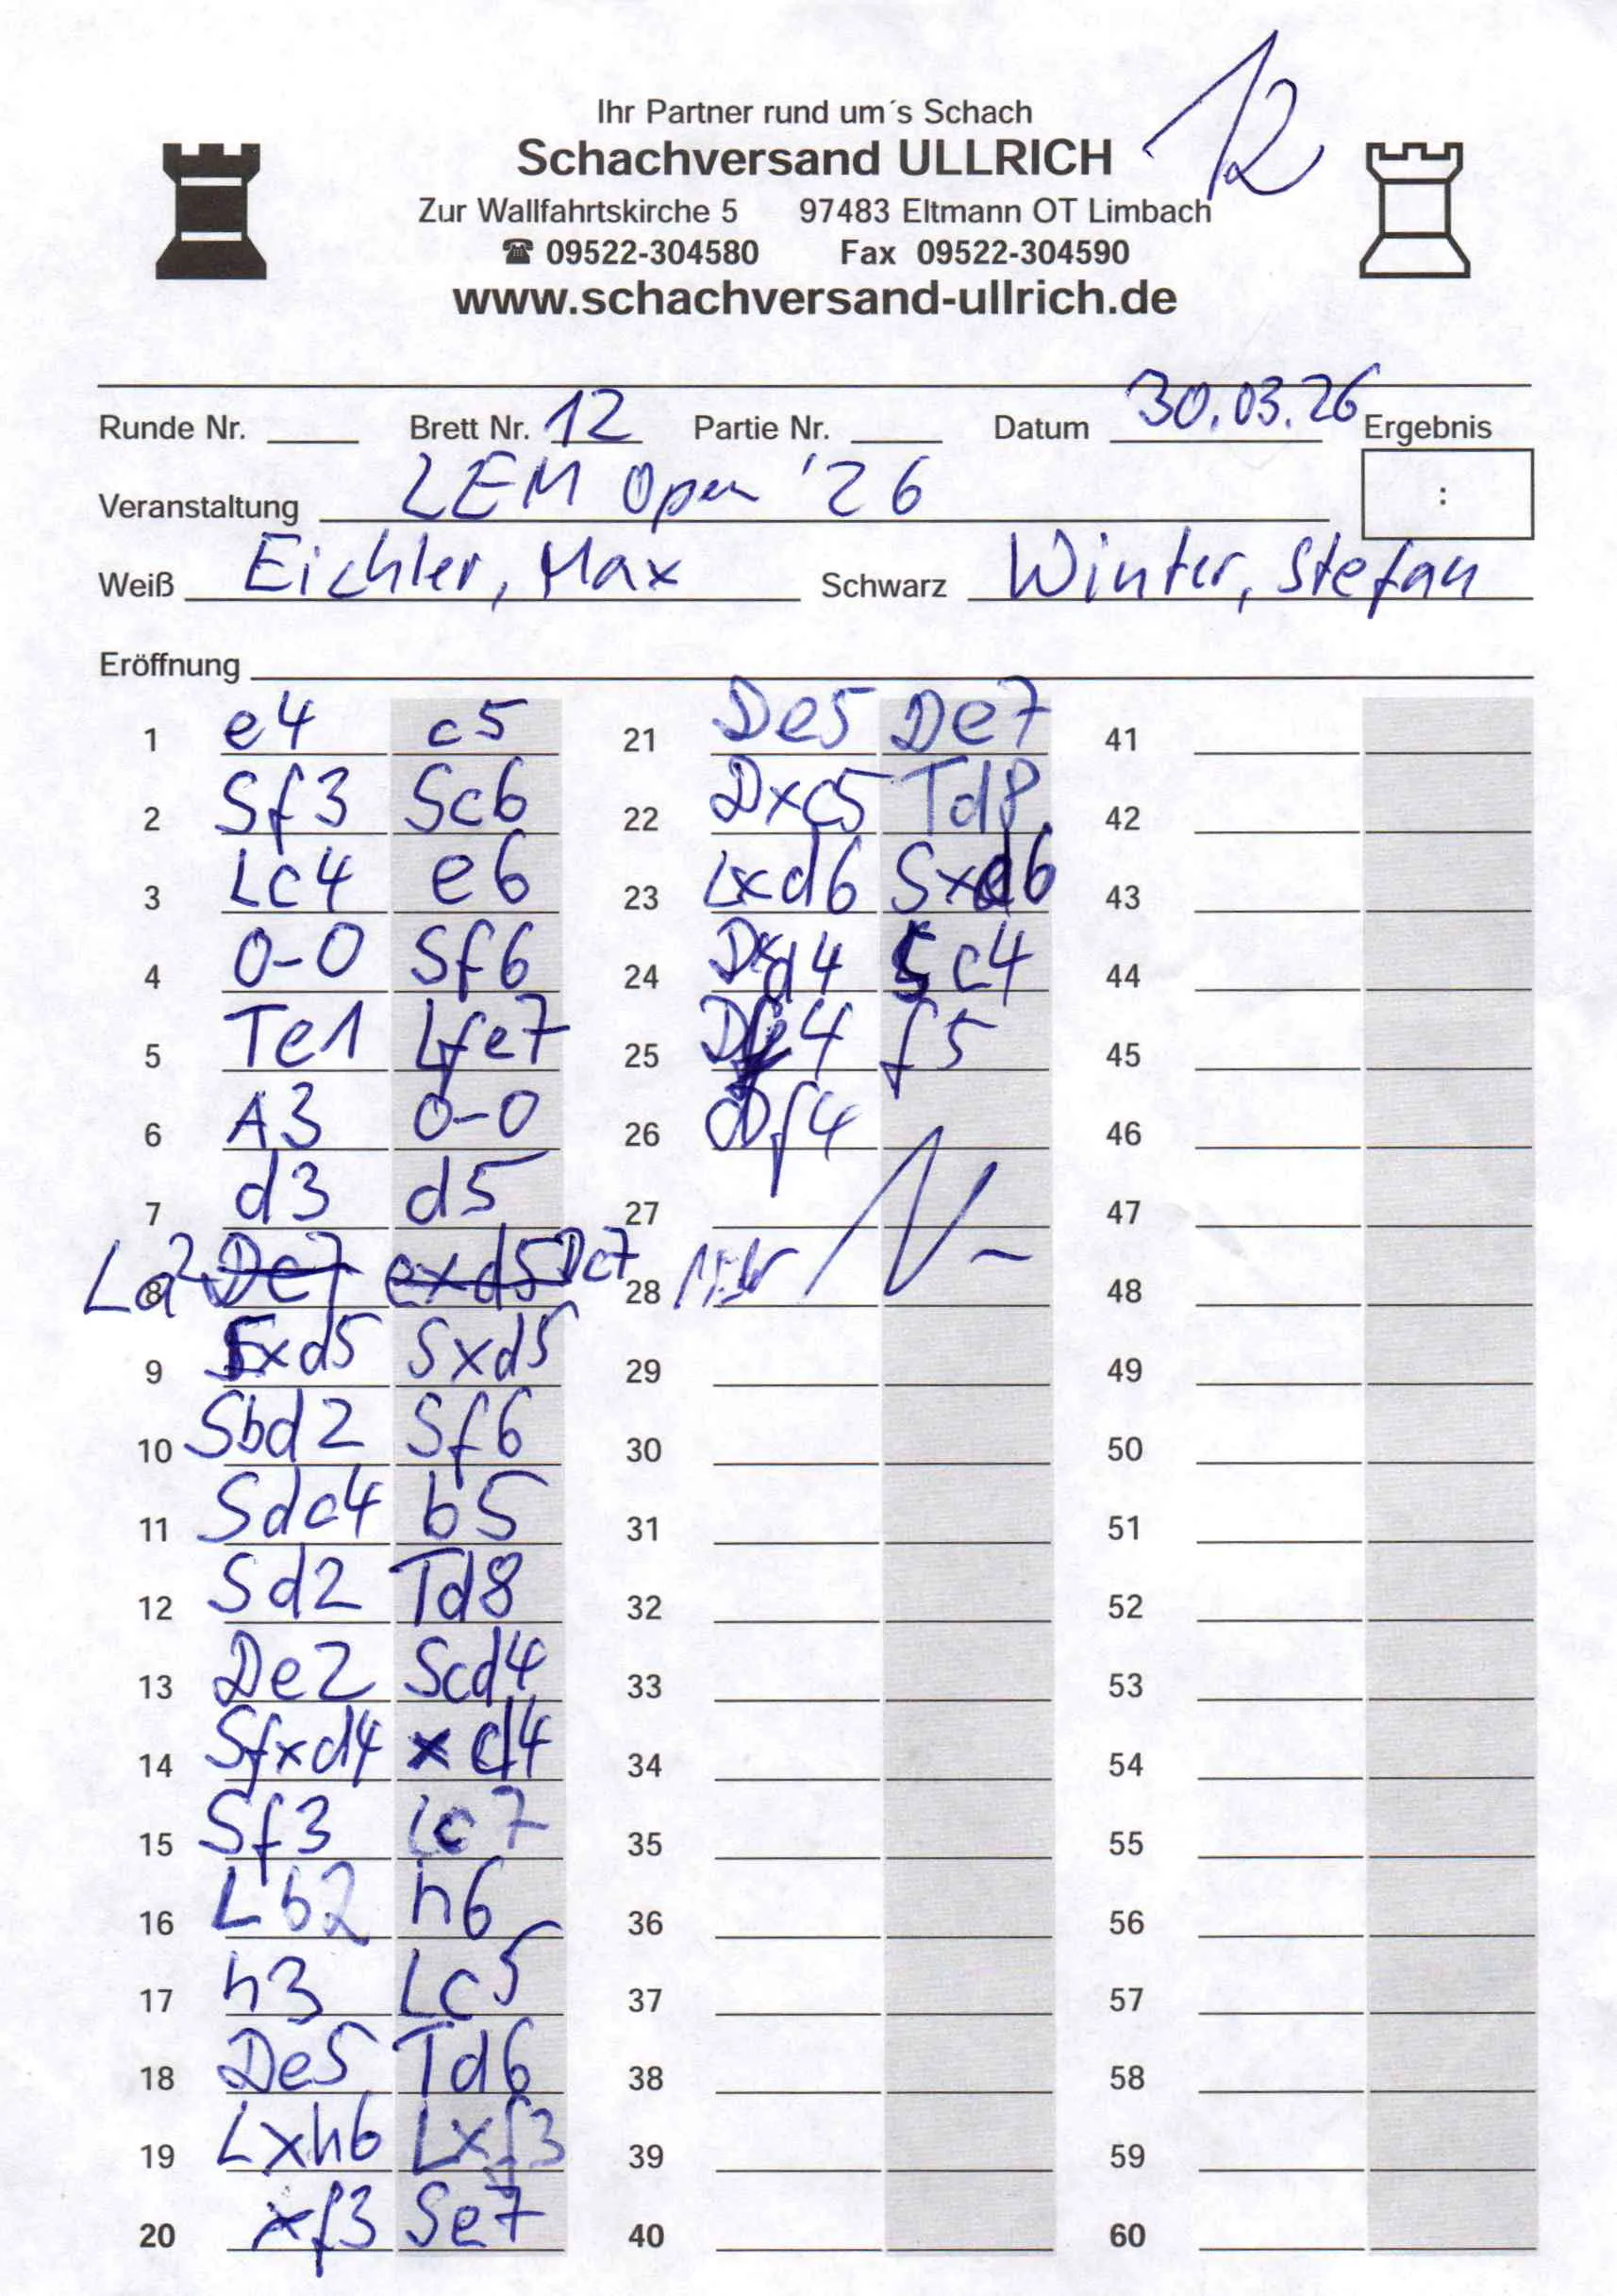 Ihr Partner rund um´s Schach
Schachversand ULLRICH
12
Zur Wallfahrtskirche 5 97483 Eltmann OT Limbach
☎ 09522-304580 Fax 09522-304590
www.schachversand-ullrich.de
Runde Nr. Brett Nr. 12 Partie Nr. Datum 30.03.26 Ergebnis
Veranstaltung LEM Open '26 :
Weiß Eichler, Max Schwarz Winter, Stefan
Eröffnung
1 e4 c5 21 De5 De7 41
2 Sf3 Sc6 22 Dxc5 Td8 42
3 Lc4 e6 23 Lxd6 Sxd6 43
4 0-0 Sf6 24 Dd4 Sc4 44
5 Te1 Le7 25 De4 f5 45
6 A3 0-0 26 Df4 46
7 d3 d5 27 47
8 La2 Dc7 exd5 Dc7 28 48
9 Exd5 Sxd5 29 49
10 Sbd2 Sf6 30 50
11 Sdc4 b5 31 51
12 Sd2 Td8 32 52
13 De2 Scd4 33 53
14 Sfxd4 xd4 34 54
15 Sf3 Lc7 35 55
16 Lb2 h6 36 56
17 h3 Lc5 37 57
18 De5 Td6 38 58
19 Lxh6 Lxf3 39 59
20 xf3 Se7 40 60